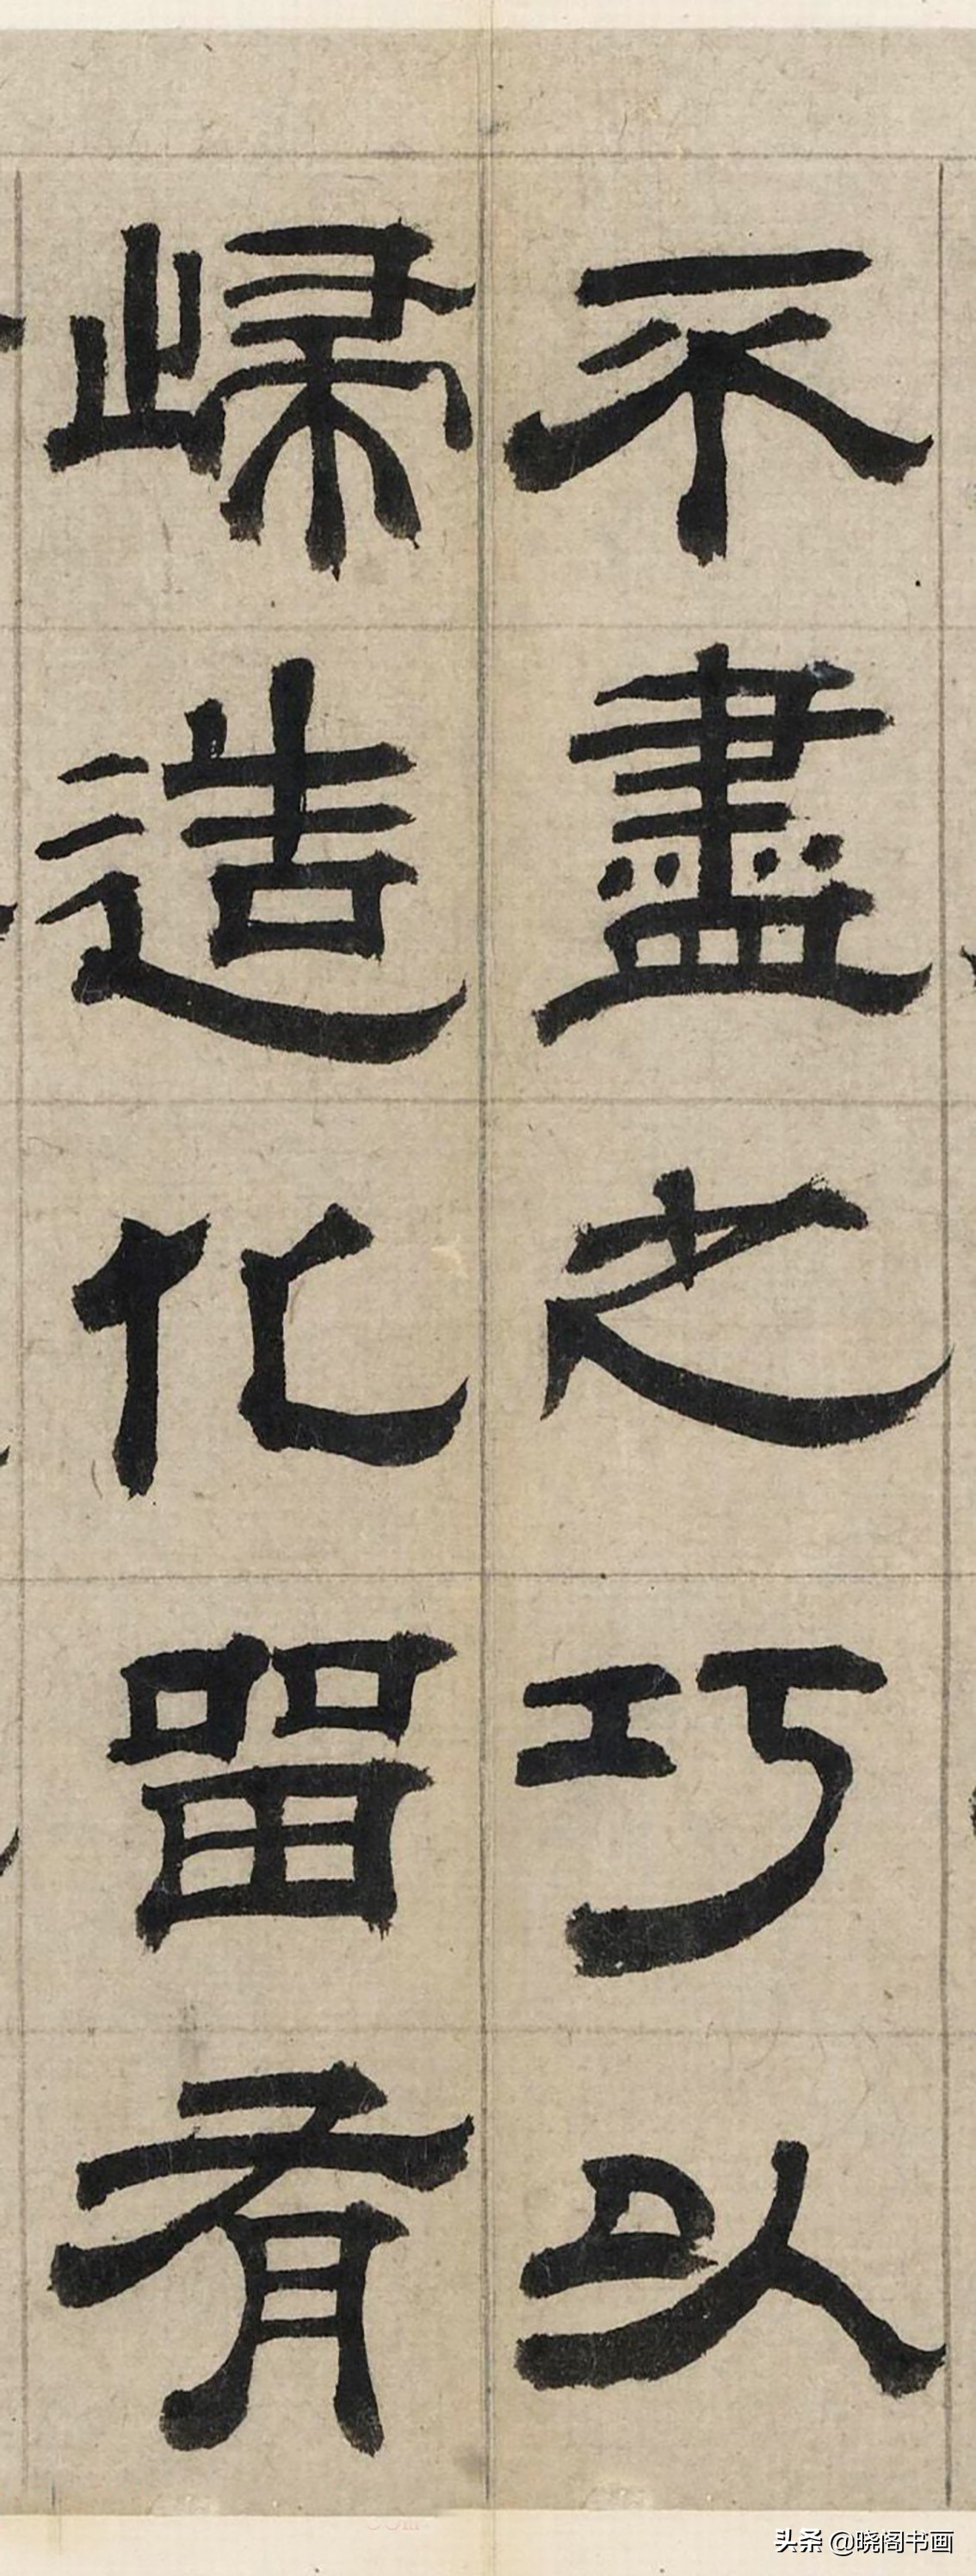 不盡之巧以
㱕造化㽞有
头条 @晓阁书画